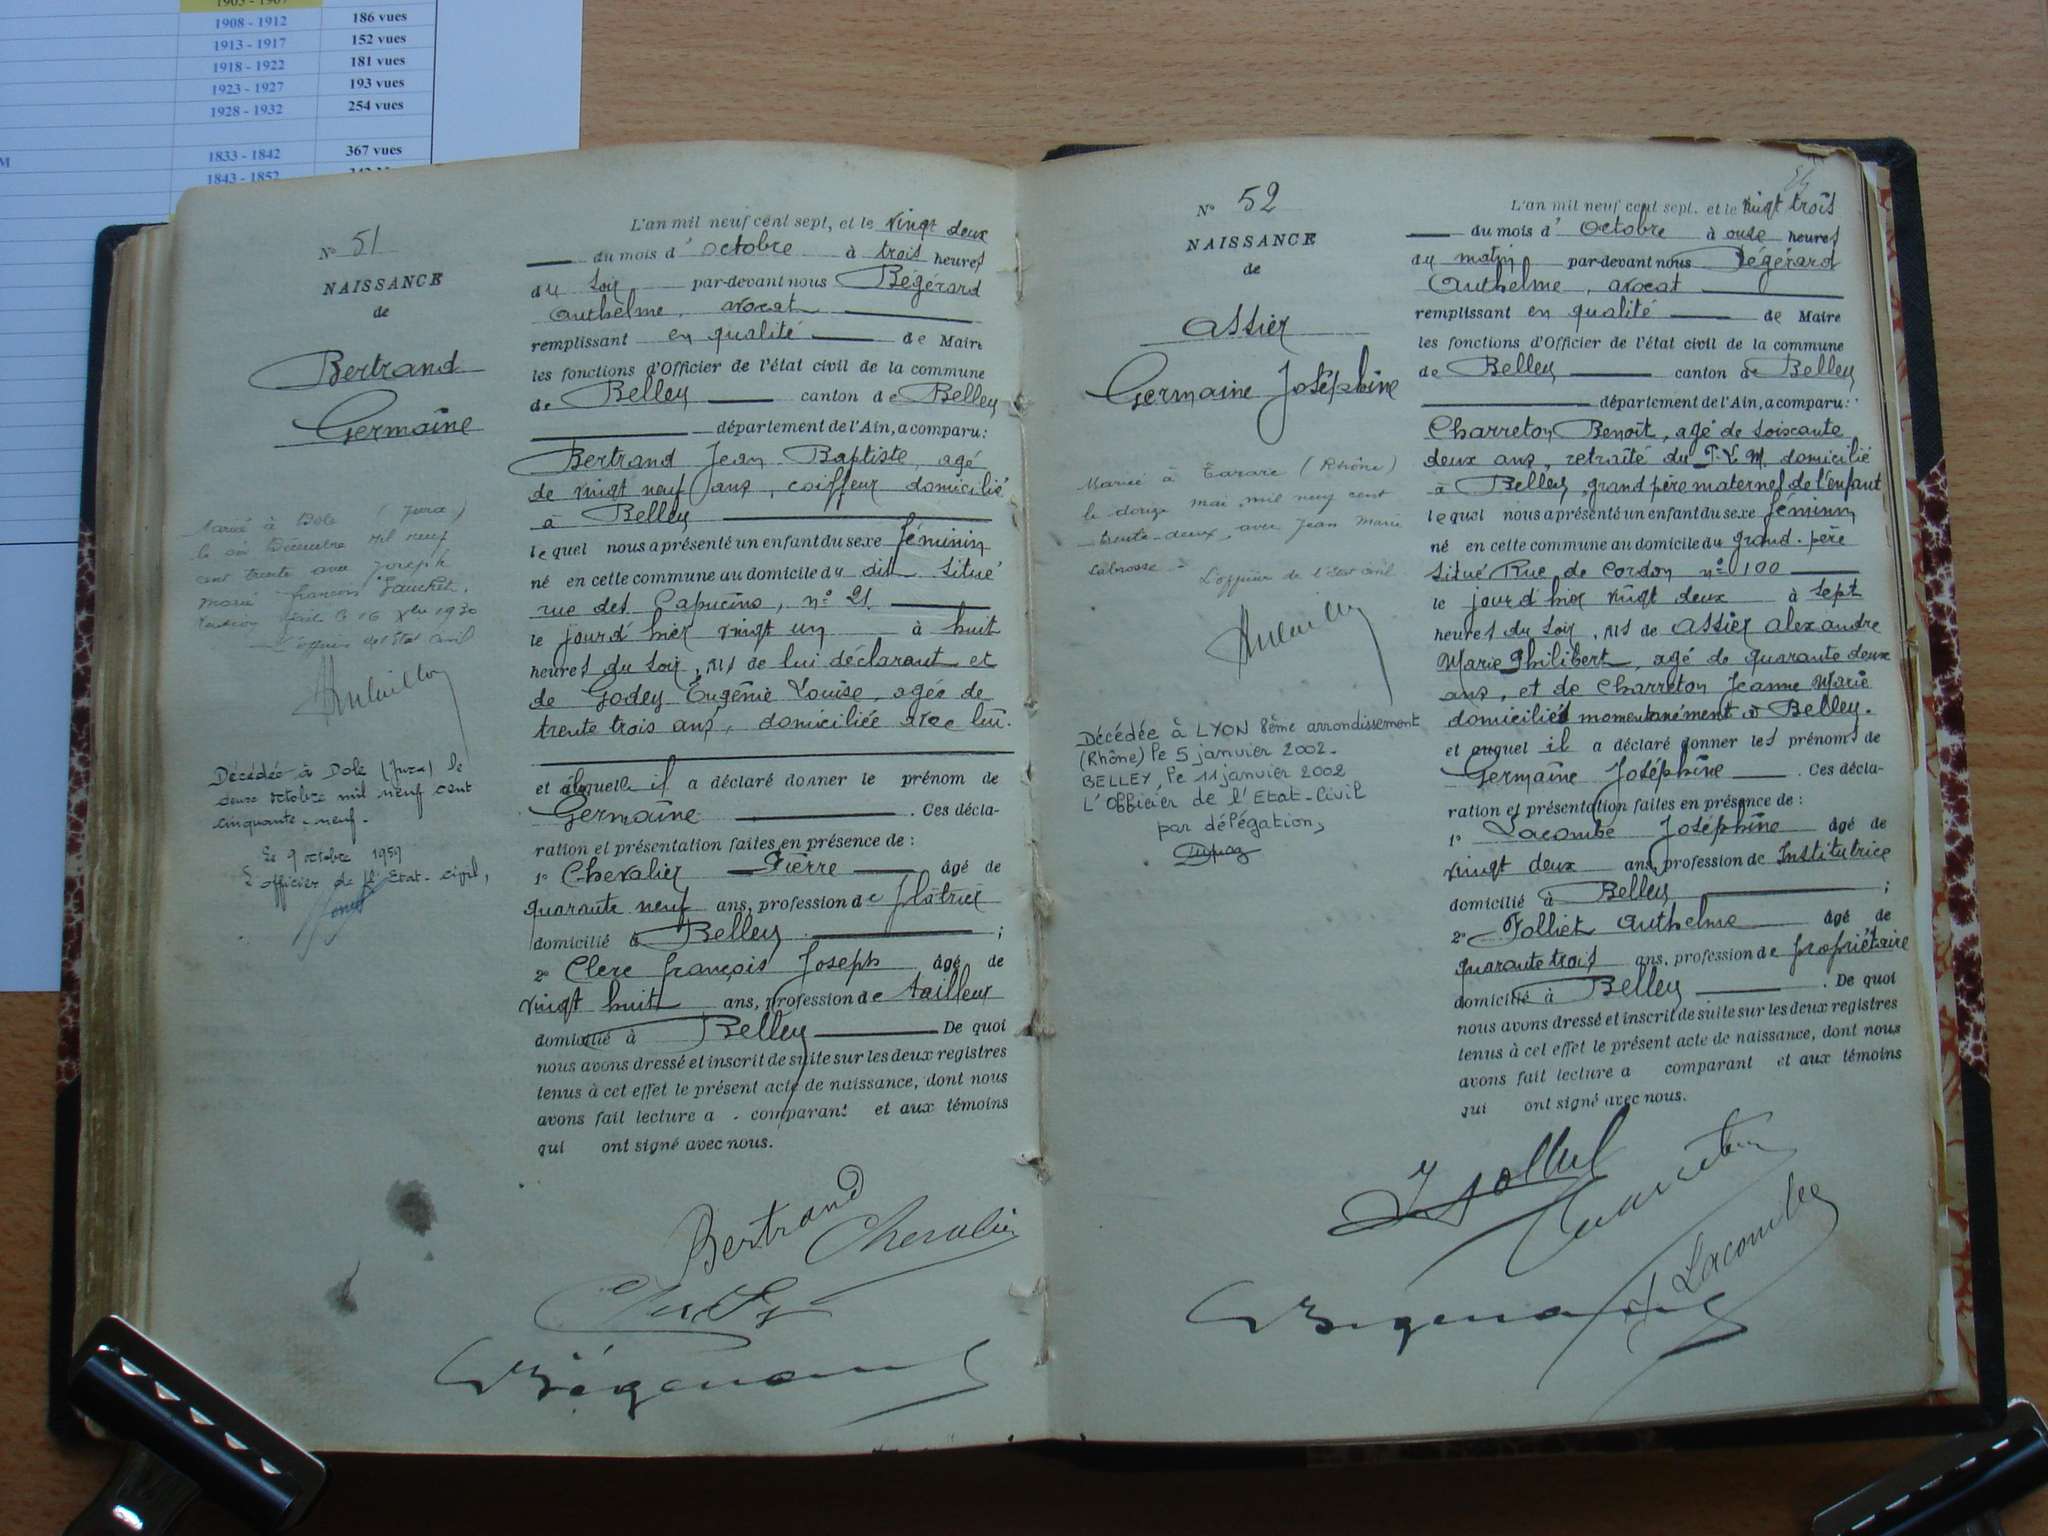 1903 - 1907
1908 - 1912 186 vues
1913 - 1917 152 vues
1918 - 1922 181 vues
1923 - 1927 193 vues
1928 - 1932 254 vues
M 1833 - 1842 367 vues
1843 - 1852
N° 51
NAISSANCE
de
Bertrand
Germaine
Marié à Dole (Jura)
le six Décembre mil neuf
cent trente avec Joseph
Marie François
le 16 Xbre 1930
L'officier de l'Etat civil
Décédée à Dole (Jura) le
deux octobre mil neuf cent
cinquante-neuf.
Le 9 octobre 1959
L'officier de l'Etat-civil,
L'an mil neuf cent sept, et le vingt deux
du mois d'octobre à trois heures
du soir par-devant nous Bégérard
Anthelme, avocat
remplissant en qualité de Maire
les fonctions d'Officier de l'état civil de la commune
de Belley canton de Belley
département de l'Ain, a comparu:
Bertrand Jean Baptiste, agé
de vingt neuf ans, coiffeur domicilié
à Belley
lequel nous a présenté un enfant du sexe féminin
né en cette commune au domicile du dit situé
rue des Capucins, n° 21
le jourd'hier vingt un à huit
heures du soir, fils de lui déclarant et
de Godey Eugénie Louise, agée de
trente trois ans, domiciliée avec lui.
et auquel il a déclaré donner le prénom de
Germaine . Ces décla-
ration et présentation faites en présence de :
1° Chevalier Pierre âgé de
quarante neuf ans, profession de plâtrier
domicilié à Belley ;
2° Clerc François Joseph âgé de
vingt huit ans, profession de tailleur
domicilié à Belley De quoi
nous avons dressé et inscrit de suite sur les deux registres
tenus à cet effet le présent acte de naissance, dont nous
avons fait lecture a comparant et aux témoins
qui ont signé avec nous.
Bertrand
Chevalier
Bégérard
N° 52
NAISSANCE
de
Assier
Germaine Joséphine
Mariée à Tarare (Rhône)
le douze mai mil neuf cent
trente-deux, avec Jean Marie
Labrosse
L'officier de l'état civil
Décédée à LYON 8ème arrondissement
(Rhône) le 5 janvier 2002.
BELLEY, le 11 janvier 2002
L'Officier de l'Etat-Civil
par délégation,
L'an mil neuf cent sept, et le vingt trois
du mois d'octobre à onze heures
du matin par-devant nous Bégérard
Anthelme, avocat
remplissant en qualité de Maire
les fonctions d'Officier de l'état civil de la commune
de Belley canton de Belley
département de l'Ain, a comparu:
Charreton Benoît, agé de soixante
deux ans, retraité du P.L.M. domicilié
à Belley, grand père maternel de l'enfant
lequel nous a présenté un enfant du sexe féminin
né en cette commune au domicile du grand-père
situé Rue de Cordon n° 100
le jourd'hier vingt deux à sept
heures du soir, fils de Assier Alexandre
Marie Philibert, agé de quarante deux
ans, et de Charreton Jeanne Marie
domiciliés momentanément à Belley.
et auquel il a déclaré donner les prénoms de
Germaine Joséphine . Ces décla-
ration et présentation faites en présence de :
1° Lacombe Joséphine âgé de
vingt deux ans, profession de Institutrice
domicilié à Belley ;
2° Folliet Anthelme âgé de
quarante trois ans, profession de propriétaire
domicilié à Belley . De quoi
nous avons dressé et inscrit de suite sur les deux registres
tenus à cet effet le présent acte de naissance, dont nous
avons fait lecture a comparant et aux témoins
qui ont signé avec nous.
Charreton
J Lacombe
Bégérard